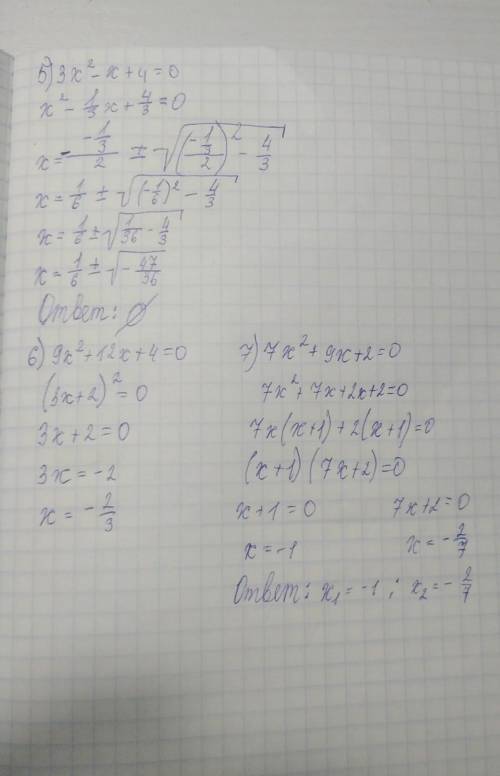 5) 3x² - x + 4 = 0
x² - 1/3 x + 4/3 = 0
x = - (-1/3)/2 ± √(((-1/3)/2)² - 4/3)
x = 1/6 ± √((-1/6)² - 4/3)
x = 1/6 ± √(1/36 - 4/3)
x = 1/6 ± √(-47/36)
Ответ: ∅
6) 9x² + 12x + 4 = 0
(3x+2)² = 0
3x + 2 = 0
3x = -2
x = -2/3
7) 7x² + 9x + 2 = 0
7x² + 7x + 2x + 2 = 0
7x(x+1) + 2(x+1) = 0
(x+1)(7x+2) = 0
x + 1 = 0 7x+2 = 0
x = -1 x = -2/7
Ответ: x₁ = -1; x₂ = -2/7